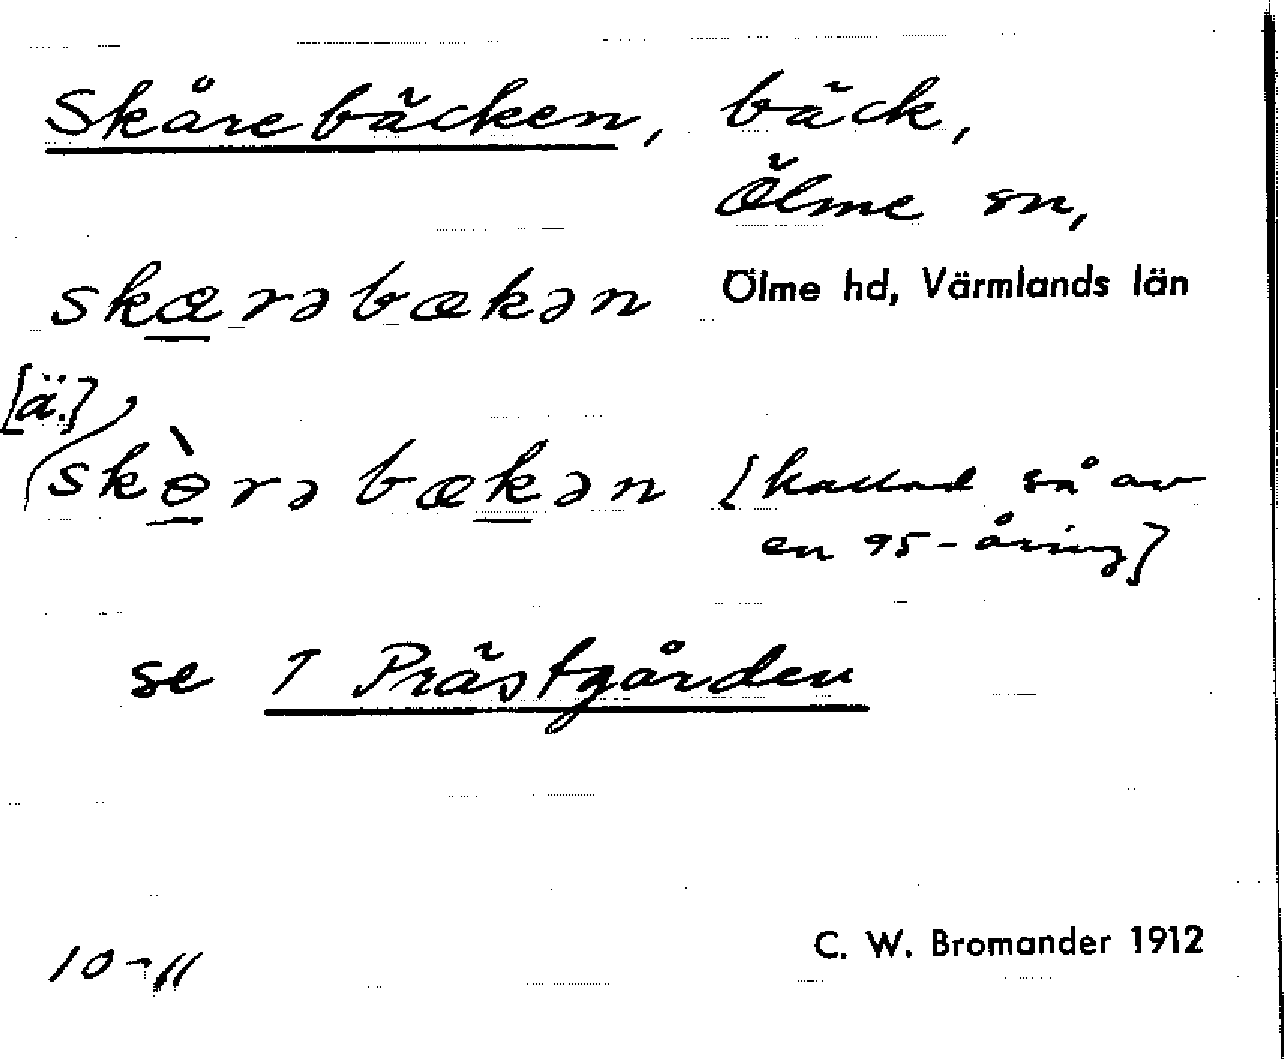 Skårebäcken, bäck,
Ölme sn,
skærəbækən Ölme hd, Värmlands län
[ä.]
skɵ̀rəbækən [kallad så av
en 95-åring]
se 1 Prästgården
10-11 C. W. Bromander 1912